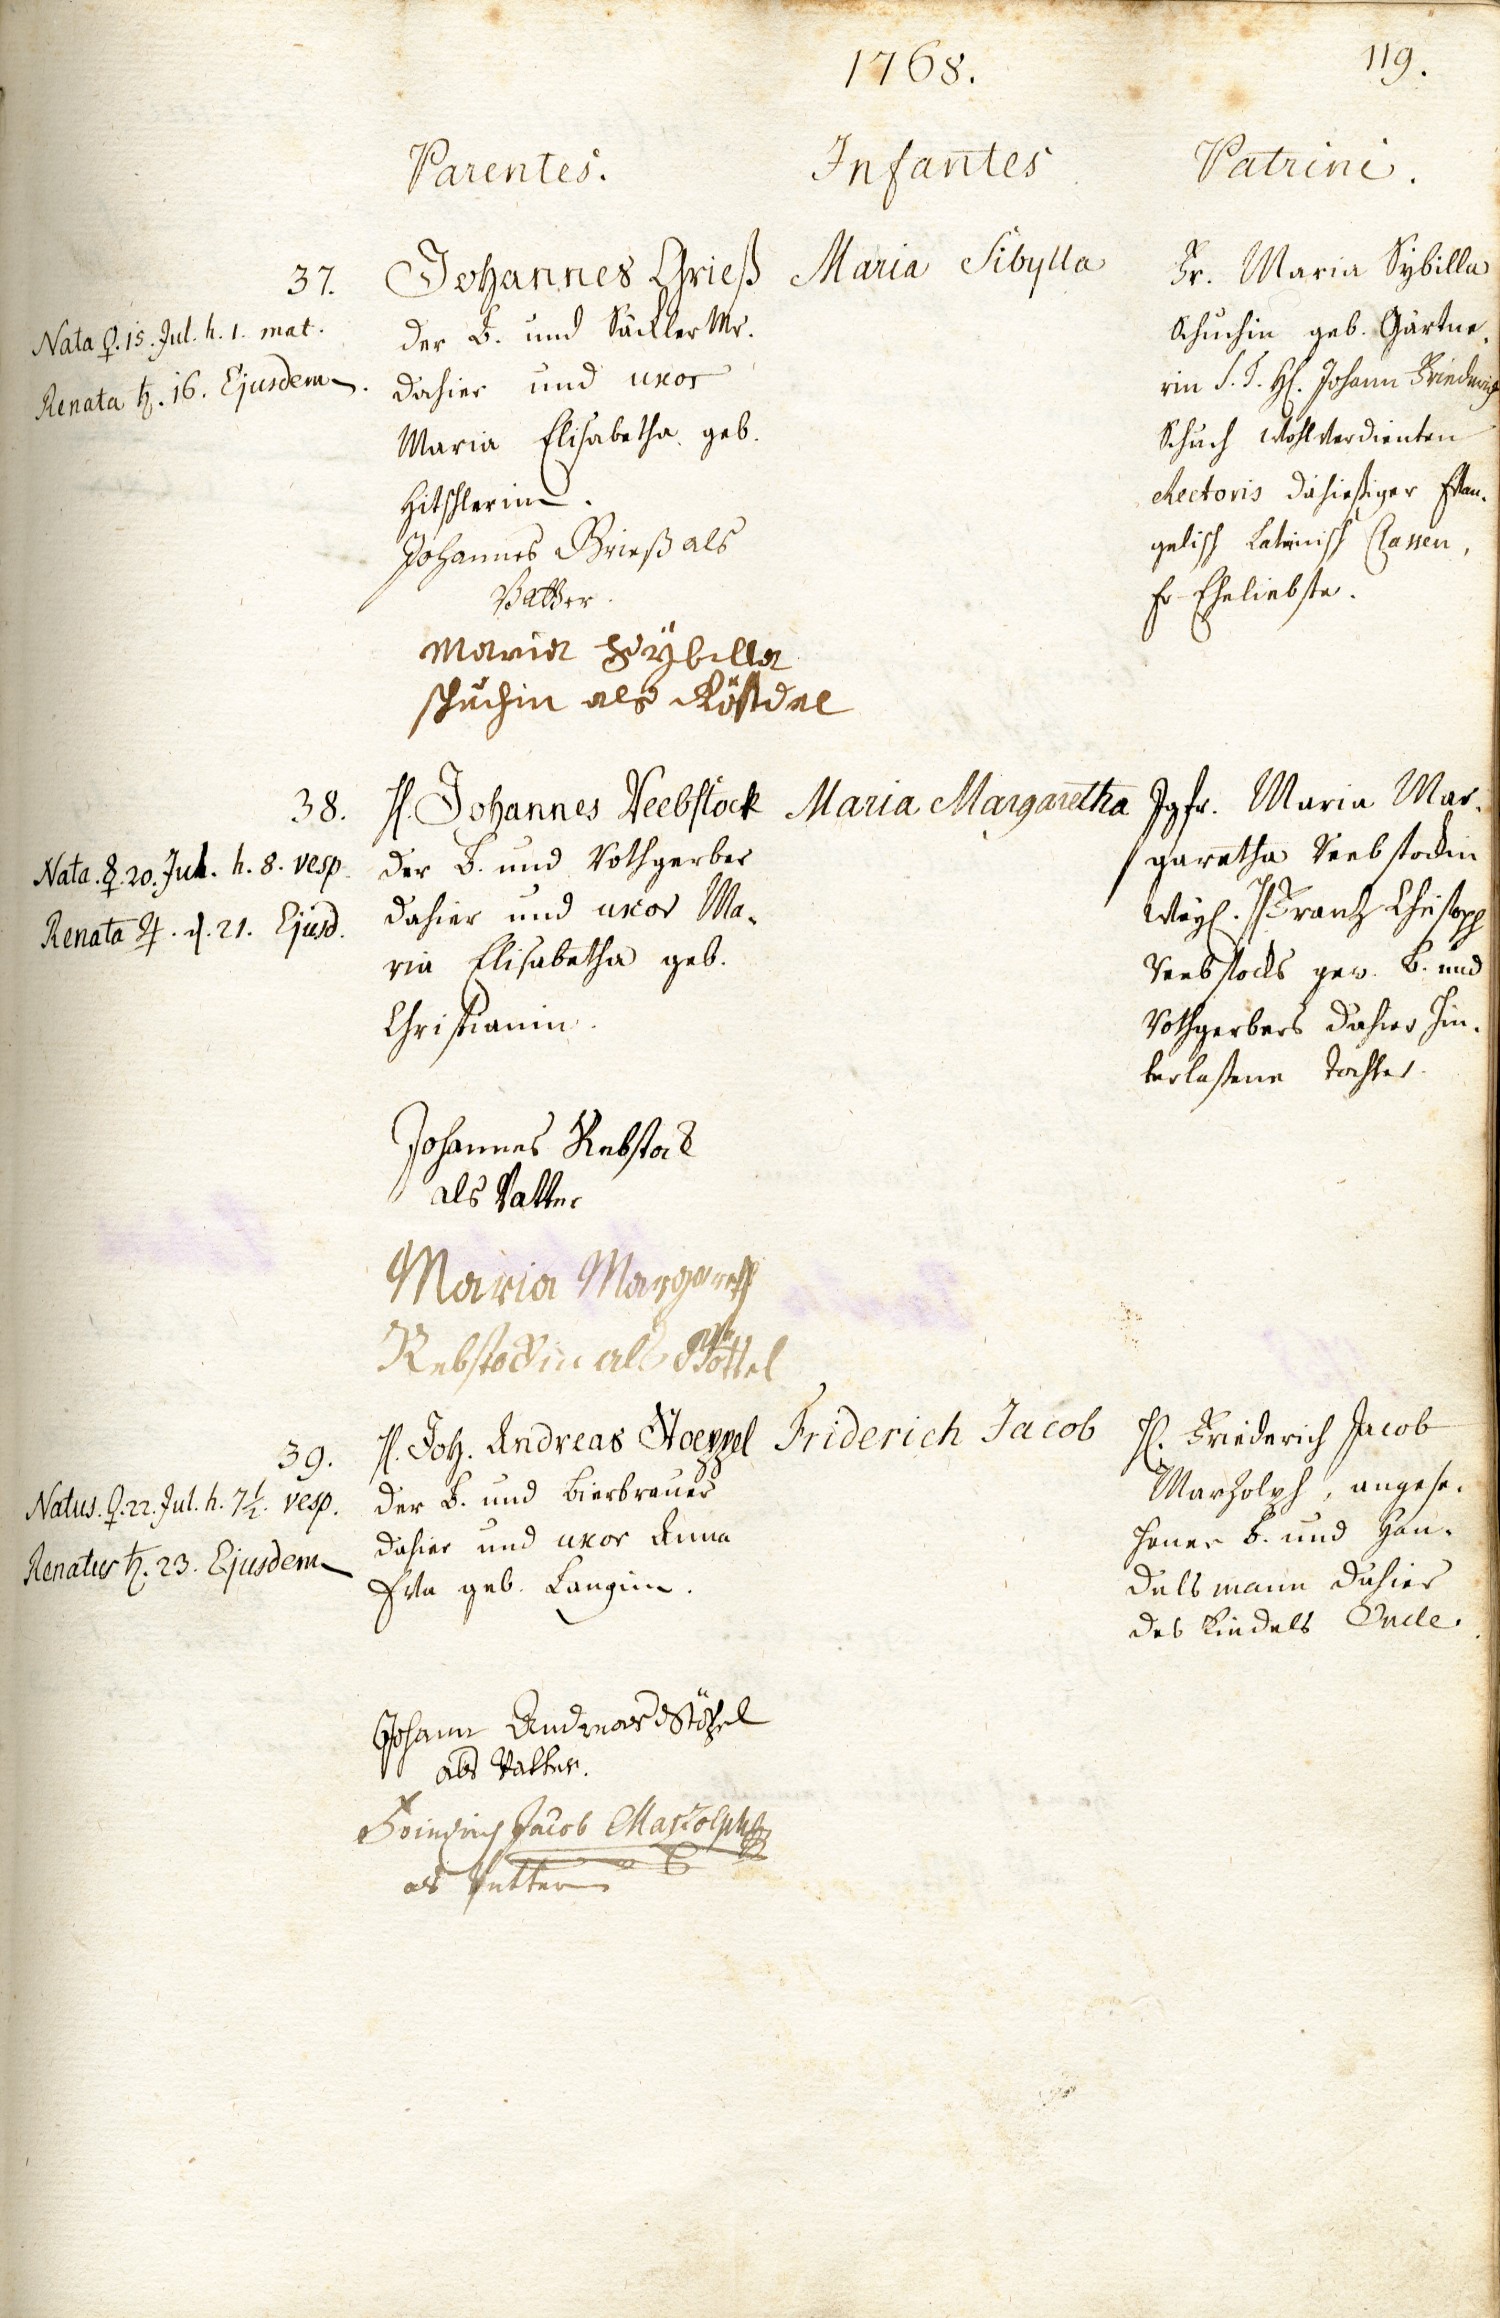 1768.
119.
Parentes.
Infantes
Patrini.
37.
Nata ♀. 15. Jul. h. 1. mat.
Renata ♄. 16. Ejusdem.
Johannes Grieß
der B. und Säckler Mr.
dahier und uxor
Maria Elisabetha geb.
Hitschlerin.
Johannes Grieß als
Vatter.
Maria Sÿbilla
schuchin als
Maria Sibylla
Fr. Maria Sybilla
Schuchin geb. Gärtne-
rin S. T. H. Johann Friederich
Schuch wohlverdienten
Rectoris dahießiger Evan-
gelisch Lateinisch Classen,
Fr Eheliebste.
38.
Nata ☿. 20. Jul. h. 8. vesp.
Renata ♃. d. 21. Ejusd.
H. Johannes Reebstock
der B. und Rothgerber
dahier und uxor Ma-
ria Elisabetha geb.
Christianin.
Johannes Rebstock
als Vatter
Maria Margareth
Rebstockin als Göttel
Maria Margaretha
Jgfr. Maria Mar-
garetha Reebstockin
weyl. H Frantz Christoph
Reebstocks gew. B. und
Rothgerbers dahier hin-
terlaßene Tochter.
39.
Natus. ♀. 22. Jul. h. 7½. vesp.
Renatus ♄. 23. Ejusdem
H. Joh. Andreas Stoeppel
der B. und Bierbrauer
dahier und uxor Anna
Eva geb. Langin.
Johann Andreas Stöpel
als Vatter.
Friedrich Jacob Marzolph
als Pfetter
Friderich Jacob
H. Friederich Jacob
Marzolph, angese-
hener B. und Han-
delsmann dahier
des Kindels Oncle.